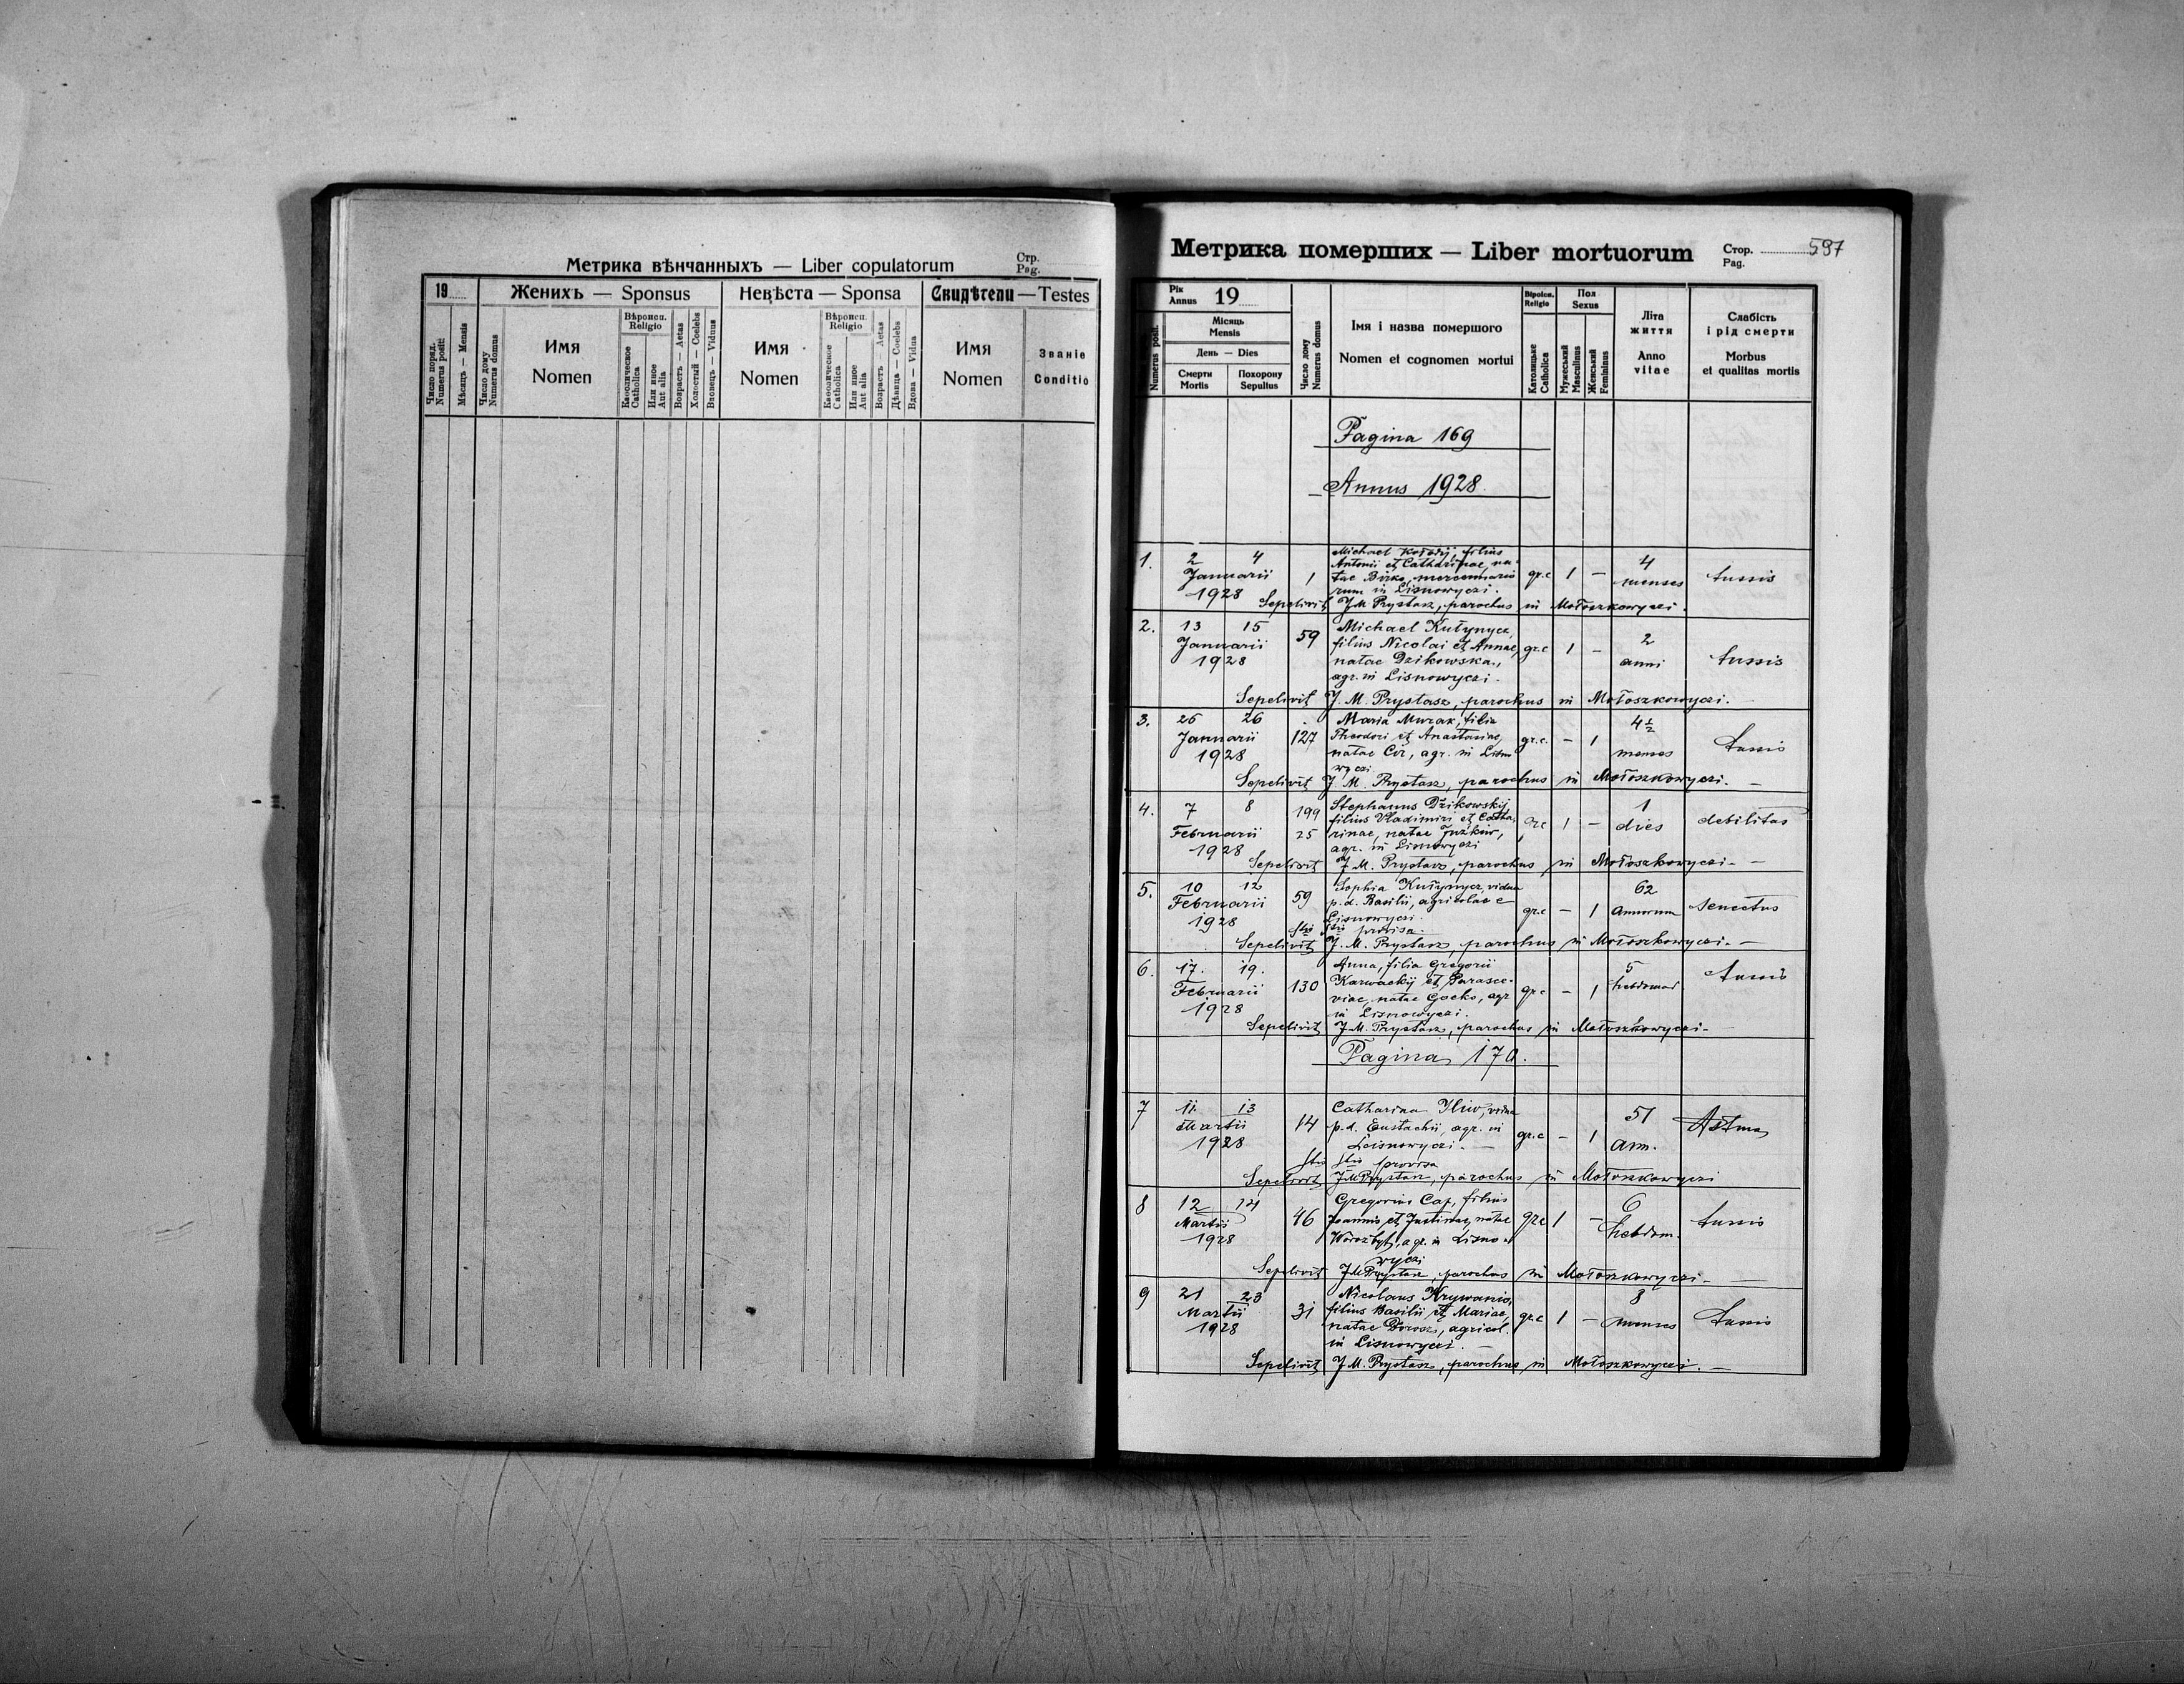 Метрика вѣнчанныхъ — Liber copulatorum
Стр.
Pag.
19
Женихъ — Sponsus
Невѣста — Sponsa
Свидѣтели — Testes
Число поряд.
Numerus positi:
Мѣсяцъ — Mensis
Число дому
Numerus domus
Имя
Nomen
Вѣроисп.
Religio
Каѳолическое
Catholica
Или иное
Aut alia
Возрастъ — Aetas
Холостый — Coelebs
Вдовецъ — Viduus
Имя
Nomen
Вѣроисп.
Religio
Каѳолическое
Catholica
Или иное
Aut alia
Возрастъ — Aetas
Дѣвица — Coelebs
Вдова — Vidua
Имя
Nomen
Званіе
Conditio
Метрика померших — Liber mortuorum
Стор.
Pag.
597
Numerus posit.
Рік
Annus 19
Місяць
Mensis
День — Dies
Смерти
Mortis
Похорону
Sepultus
Число дому
Numerus domus
Імя і назва помершого
Nomen et cognomen mortui
Віроісп.
Religio
Католицьке
Catholica
Пол
Sexus
Мужеський
Masculinus
Женський
Femininus
Літа
життя
Anno
vitae
Слабість
і рід смерти
Morbus
et qualitas mortis
Pagina 169
Annus 1928
1. 2 4 Januarii 1928 1
Michael filius
Antonii et Catharinae, na-
tae Birko, mercennario
rum in Lisnowyczi.
gr.c 1 – 4 menses tussis
Sepelivit J M Prystasz, parochus in Mołoszkowyczi.
2. 13 15 Januarii 1928 59
Michael Kułynycz,
filius Nicolai et Annae,
natae Dzikowska,
agr. in Lisnowyczi.
gr.c 1 – 2 anni tussis
Sepelivit J. M. Prystasz, parochus in Mołoszkowyczi. –
3. 25 26 Januarii 1928 127
Maria Murak, filia
Theodori et Anastasiae,
natae Cir, agr. in Lisno
wyczi
gr.c. – 1 4½ menses tussis
Sepelivit J. M. Prystasz, parochus in Mołoszkowyczi. –
4. 7 8 Februarii 1928 199 25
Stephanus Dzikowskij,
filius Vladimiri et Catha-
rinae, natae Juzkiw,
agr. in Lisnowyczi
gr.c 1 – 1 dies debilitas
Sepelivit J. M. Prystasz, parochus in Mołoszkowyczi. –
5. 10 12 Februarii 1928 59
Sophia Kułynycz, vidua
p.d. Basilii, agricolae e
Lisnowyczi.
provisa.
gr.c – 1 62 annorum senectus
Sepelivit J. M. Prystasz, parochus in Mołoszkowyczi. –
6. 17. 19. Februarii 1928 130
Anna, filia Gregorii
Karwackij et Parasce-
viae, natae Gocko, agr
in Lisnowyczi.
gr.c – 1 5 hebdomad. tussis
Sepelivit J. M. Prystasz, parochus in Mołoszkowyczi. –
Pagina 170.
7 11. 13 Martii 1928 14
Catharina Iliw, vidua
p.d. Eustachii, agr. in
Lisnowyczi. –
provisa
gr.c – 1 51 ann. Astma
Sepelivit J M Prystasz, parochus in Mołoszkowyczi
8 12 14 Martii 1928 46
Gregorius Cap, filius
Joannis et Justinae, natae
Worożbyt, agr. in Lisno-
wyczi
gr.c 1 – 6 hebdom. tussis
Sepelivit J M Prystasz, parochus in Mołoszkowyczi. –
9 21 23 Martii 1928 31
Nicolaus Krywanis,
filius Basilii et Mariae,
natae Dorosz, agricol.
in Lisnowyczi. –
gr.c 1 – 3 menses tussis
Sepelivit J M. Prystasz, parochus in Mołoszkowyczi. –